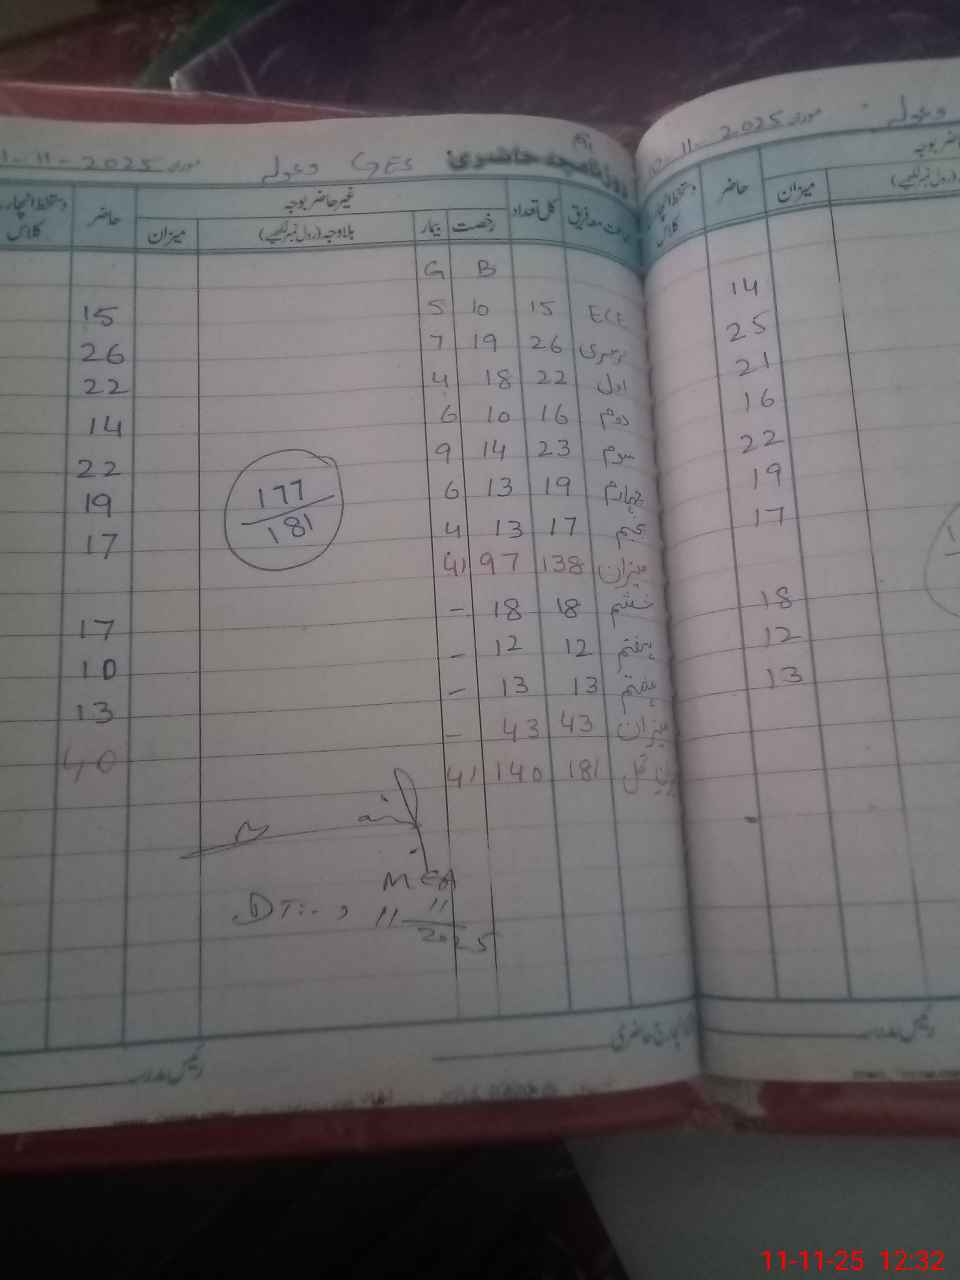 روزنامچہ حاضری GES دعولہ مورخہ 11-11-2025
جماعت معہ فریق کل تعداد غیر حاضر بوجہ حاضر دستخط انچارج کلاس
رخصت بیمار بلاوجہ (رول نمبر لکھیے) میزان
B G
ECE 15 10 5 15
نرسری 26 19 7 26
اول 22 18 4 22
دوم 16 10 6 14
سوم 23 14 9 22
چہارم 19 13 6 19
پنجم 17 13 4 17
میزان 138 97 41
177
181
ششم 18 18 - 17
ہفتم 12 12 - 10
ہشتم 13 13 - 13
میزان 43 43 - 40
کل 181 140 41
MEA
DT:- 11
11
2025
انچارج حاضری
رئیس مدرسہ
دعولہ مورخہ 11-2025
حاضر بوجہ
(رول نمبر لکھیے) میزان حاضر دستخط انچارج کلاس
14
25
21
16
22
19
17
18
12
13
رئیس مدرسہ
11-11-25 12:32